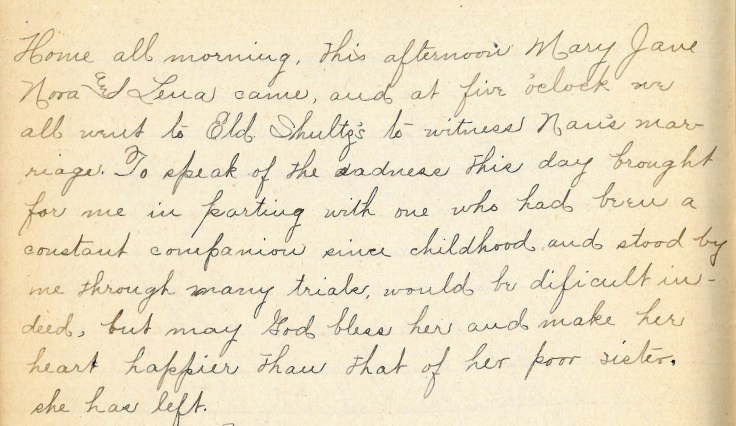 Home all morning, this afternoon Mary Jane
Nora & Lena came, and at five o'clock we
all went to Eld. Shultz's to witness Nan's mar-
riage. To speak of the sadness this day brought
for me in parting with one who had been a
constant companion since childhood and stood by
me through many trials, would be dificult in-
deed, but may God bless her and make her
heart happier than that of her poor sister.
she has left.